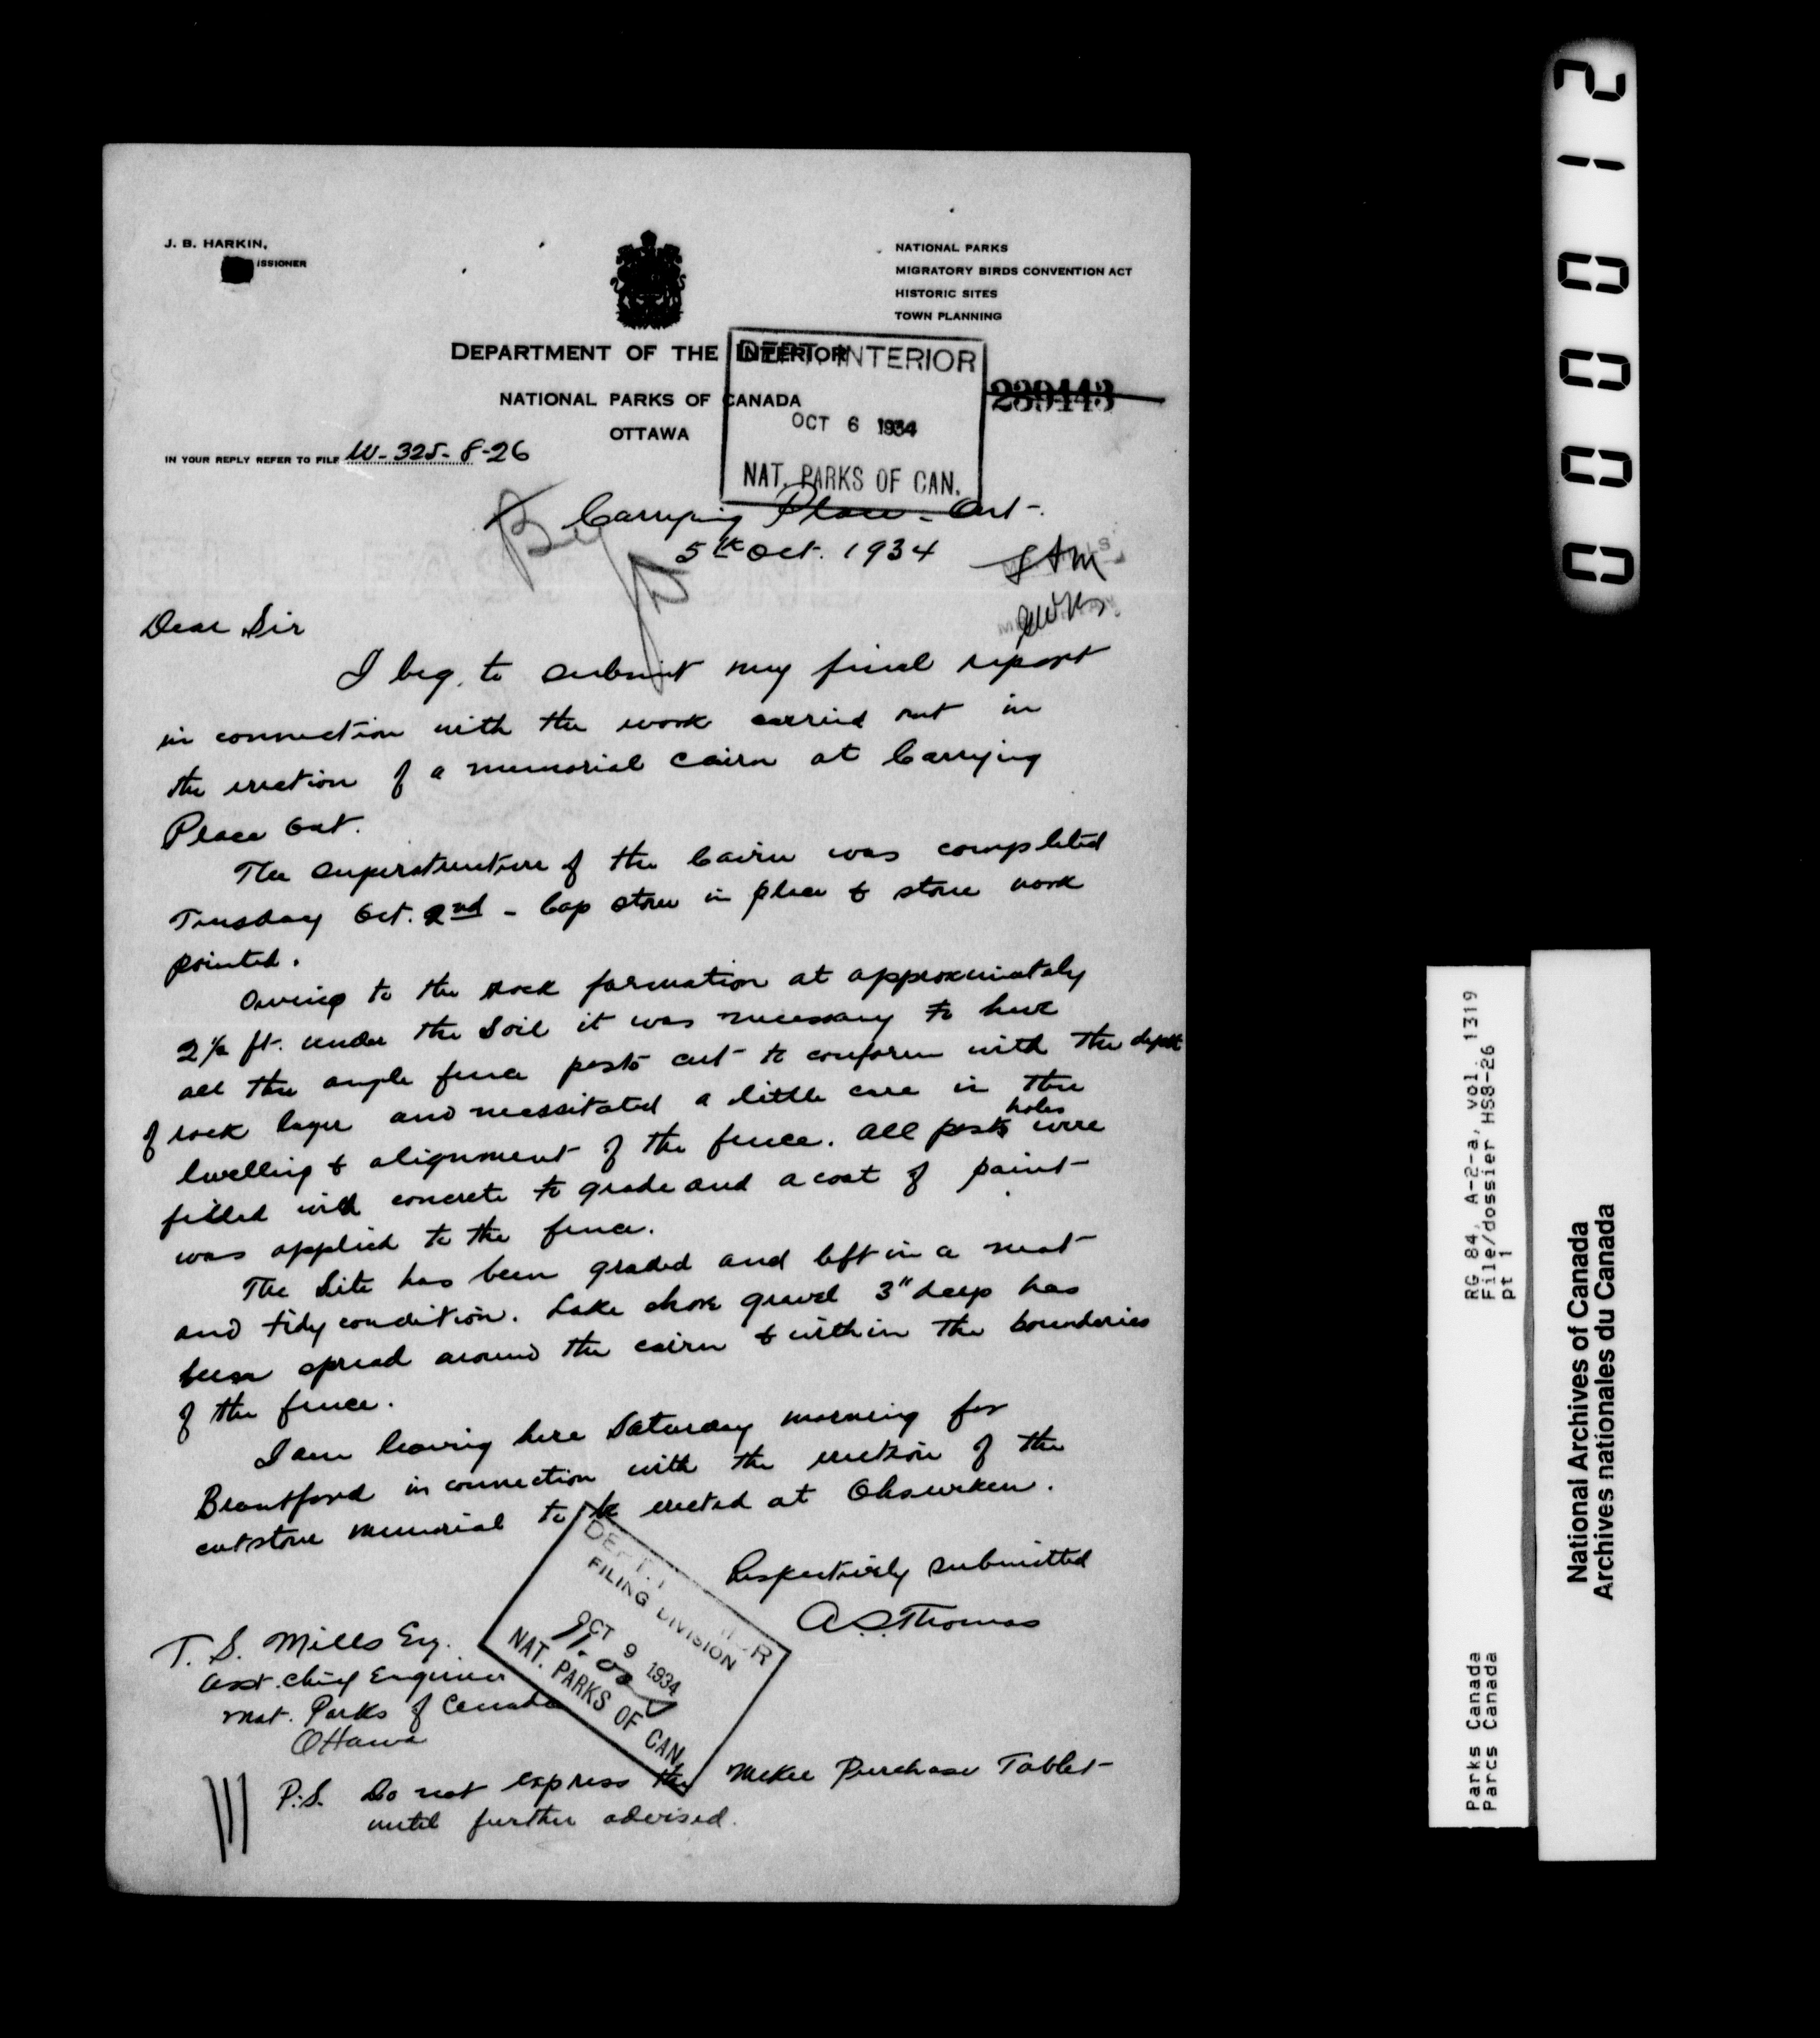 J. B. HARKIN,
ISSIONER
NATIONAL PARKS
MIGRATORY BIRDS CONVENTION ACT
HISTORIC SITES
TOWN PLANNING
DEPARTMENT OF THE INTERIOR
NATIONAL PARKS OF CANADA
OTTAWA
DEPT. INTERIOR
OCT 6 1934
NAT. PARKS OF CAN.
239443
IN YOUR REPLY REFER TO FILE W-325-8-26
Carrying Place - Ont-.
5th Oct. 1934
Dear Sir
I beg to submit my final report
in connection with the work carried out in
the erection of a memorial cairn at Carrying
Place Ont.
The superstructure of the Cairn was completed
Tuesday Oct. 2nd - Cap stone in place & stone work
pointed.
Owing to the rock formation at approximately
2½ ft. under the soil it was necessary to have
all the angle fence posts cut to conform with the depth
of rock layer and necessitated a little care in the
levelling & alignment of the fence. All posts holes were
filled with concrete to grade and a coat of paint
was applied to the fence.
The site has been graded and left in a neat
and tidy condition. Lake shore gravel 3" deep has
been spread around the cairn & within the bounderies
of the fence.
I am leaving here Saturday morning for
Brantford in connection with the erection of the
cutstone memorial to be erected at Ohsweken.
Respectively submitted
A.S. Thomas
DEPT. INTERIOR
FILING DIVISION
OCT 9 1934
NAT. PARKS OF CAN.
T. S. Mills Esq.
Asst. Chief Engineer
Nat. Parks of Canada
Ottawa
P.S. Do not express the McKee Purchase Tablet
until further advised.
000012
RG 84, A-2-a, vol. 1319
File/dossier HS8-26
pt 1
Parks Canada
Parcs Canada
National Archives of Canada
Archives nationales du Canada